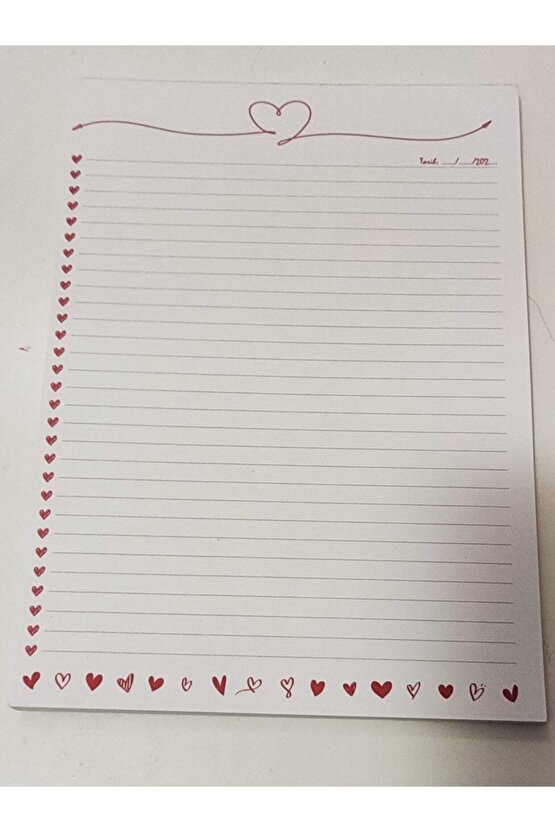 Tarih: ....../....../202....